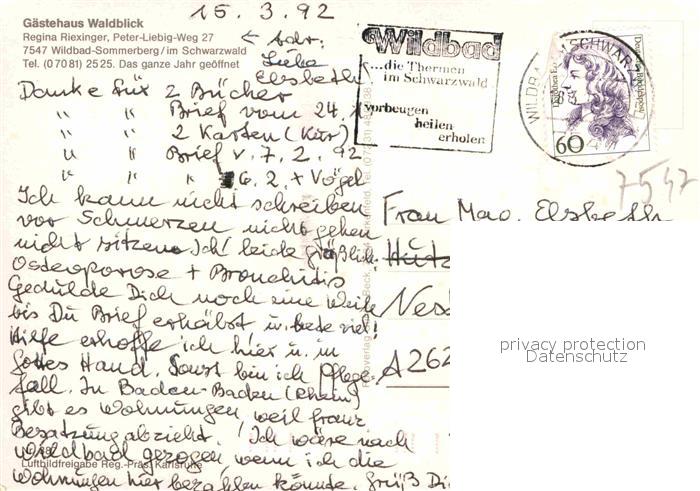 15. 3. 92
Gästehaus Waldblick
Regina Riexinger, Peter-Liebig-Weg 27
7547 Wildbad-Sommerberg/im Schwarzwald
Tel. (07081) 2525. Das ganze Jahr geöffnet
← Adr.
Liebe
Elsbeth!
Danke für 2 Bücher
" " Brief vom 24. 1.
" " 2 Karten (Kur)
" " Brief v. 7. 2. 92
" " " 6. 2 + Vögel
Ich kann nicht schreiben
vor Schmerzen nicht gehen
nicht sitzen. Ich leide gräßlich
Osteoporose + Bronchitis
Gedulde Dich noch eine Weile
bis Du Brief erhältst u. bete viel!
Hilfe erhoffe ich hier u. in
Gottes Hand. Sonst bin ich Pflege-
fall. In Baden-Baden (Rhein)
gibt es Wohnungen, weil franz.
Besatzung abzieht. Ich wäre nach
Wildbad gezogen wenn ich die
Luftbildfreigabe Reg.-Präs. Karlsruhe
Wohnungen hier bezahlen könnte. Grüß Di
Wildbad
...die Thermen
im Schwarzwald
vorbeugen
heilen
erholen
Deutsche Bundespost
60
7547
Frau Mag. Elsbeth
A 262
privacy protection
Datenschutz